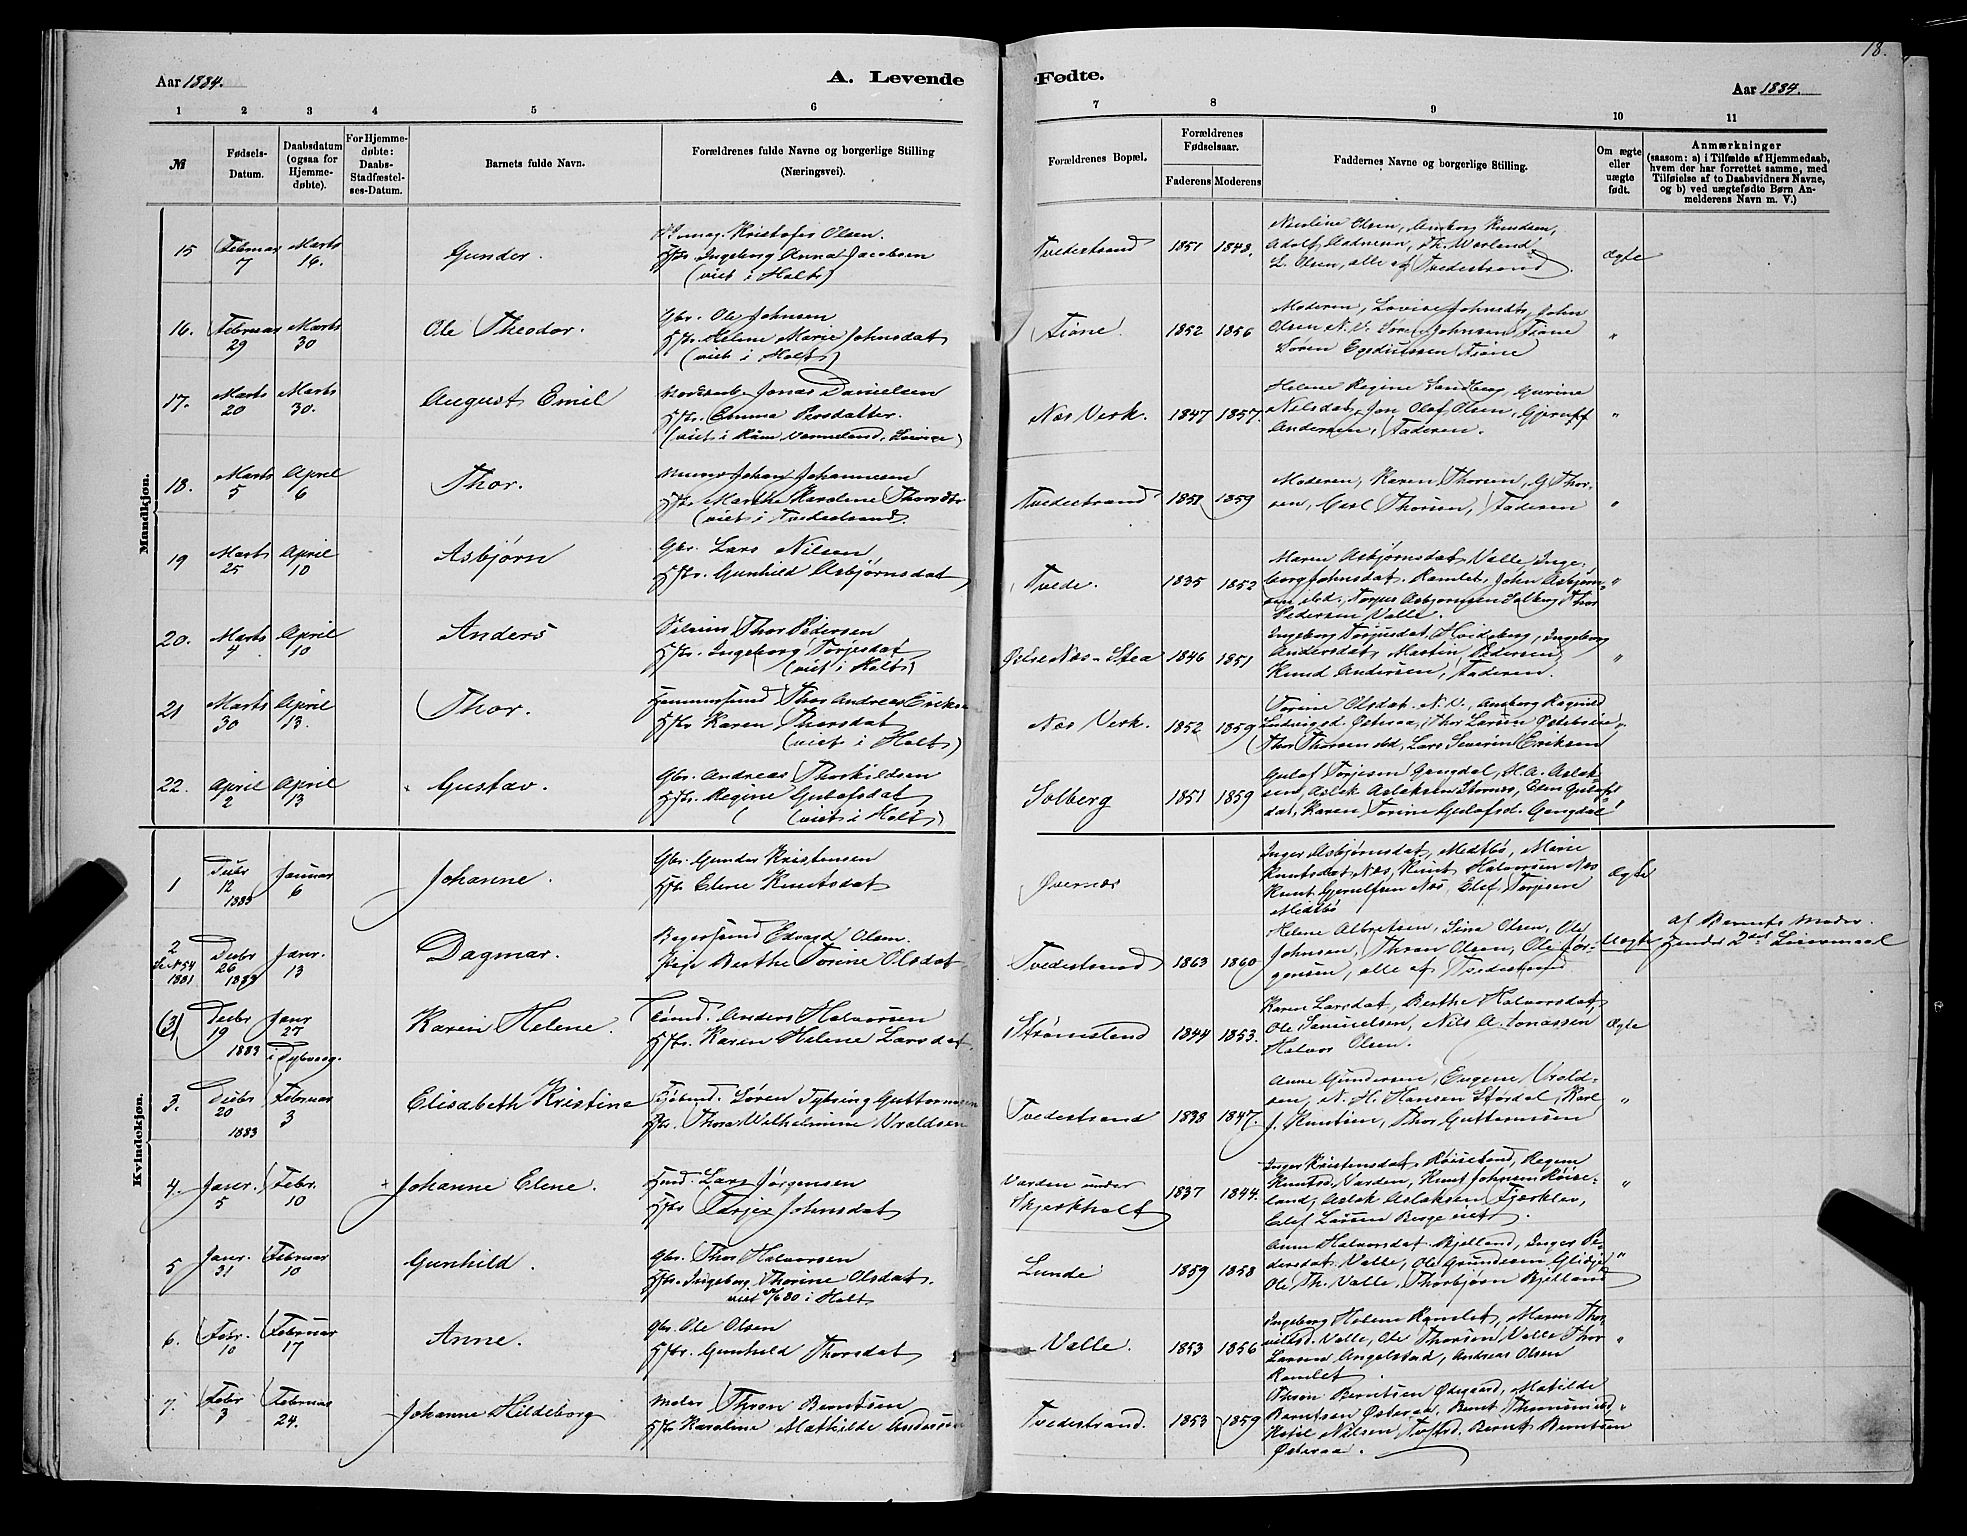 18.
Aar 1884.
A. Levende
Fødte.
Aar 1884.
1 2 3 4 5 6 7 8 9 10 11
№
Fødsels-
Datum.
Daabsdatum
(ogsaa for
Hjemme-
døbte).
For Hjemme-
døbte:
Daabs-
Stadfæstel-
ses-Datum.
Barnets fulde Navn.
Forældrenes fulde Navne og borgerlige Stilling
(Næringsvei).
Forældrenes Bopæl.
Forældrenes
Fødselsaar.
Faderens Moderens
Faddernes Navne og borgerlige Stilling.
Om ægte
eller
uægte
født.
Anmærkninger
(saasom: a) i Tilfælde af Hjemmedaab,
hvem der har forrettet samme, med
Tilføielse af to Daabsvidners Navne,
og b) ved uægtefødte Børn An-
melderens Navn m. V.)
Mandkjøn.
15 Februar 7 Marts 16. Gunder.
Kristofer Olsen.
Ingeborg Anna Jacobsen
(viet i Holt)
Tvedestrand 1851 1848.
Olsen, Knudsen,
Adolf
L. Olsen, alle af Tvedestrand. Ægte
16. Februar 29 Marts 30 Ole Theodor.
Gbr. Ole Johnsen
Hstr. Helene Marie Johnsdat
(viet i Holt)
Fiane. 1852 1856
Moderen, Lovise Johnsdt, John
Olsen N.V. Søren Johnsen Fiane
Søren Fiane "
17. Marts 20 Marts 30. August Emil
Jonas Danielsen
Hstr. Emma Persdatter.
(viet i Vermeland,
Næs Verk. 1847 1857.
Helene Regine Sandberg, Gurine
Nilsdat, Olof Olsen,
Andersen, Faderen. "
18. Marts 5 April 6 Thor.
Johan Johannesen
Hstr. Marthe Karoline Thorsdtr
(viet i Tvedestrand.
Tvedestrand 1859
Moderen, Karen Thorsen, G. Thor-
sen, Carl Thorsen, Faderen "
19 Marts 25 April 10 Asbjørn
Gbr. Lars Nilsen
Hstr. Gunhild Asbjørnsdat
Tvede. 1835 1852
Maren Asbjørnsdat Valle, Inge-
borg Johnsdat. Ramlet, John Asbjørn-
sen ibd., Asbjørnsen Solberg, Thor
Pedersen Valle. "
20. Marts 4 April 10 Anders
Thor Pedersen
Hstr. Ingeborg Torjesdat
(viet i Holt)
1846 1851
Ingeborg Torjusdat Ingeborg
Andersdat, Martin Pedersen,
Knud Andersen, Faderen. "
21 Marts 30 April 13. Thor.
Thor Andreas Eriksen
Hstr. Karen Thorsdat
(viet i Holt)
Næs Verk. 1852 1859
Torine Olsdat N.V., Aasborg Ragnild
Ludvigsd. Østeraa, Thor Larsen
Thor Thorsen ibd, Lars Severin Eriksen "
22. April 2 April 13 Gustav.
Gbr. Andreas Thorkildsen
Hstr. Regine Gulofsdat
(viet i Holt)
Solberg 1851 1859
Gulof Torjesen Gangdal, H.A. Aslak-
sen, Aslak Aslaksen Elen Gulofs-
dat, Karen Torine Gulofsd. Gangdal "
Kvindekjøn.
1 Decbr 12 1883 Januar 6 Johanne.
Gbr. Gunder Kristensen
Hstr Elene Knutsdat
Øvernæs
Inger Asbjørnsdat, Midtbø, Marie
Knutsdat Næs, Knut Halvorsen Næs
Knut Gjerulfsen Næs, Elef Torjesen
Midtbø Ægte
2 Se N 54 1881 Decbr 26 1883 Janr. 13 Dagmar.
Edvard Olsen.
Pige Berthe Torine Olsdat
Tvedestrand 1863 1860
Helene Albretsen, Sina Olsen, Ole
Johnsen, Thron Olsen, Ole Jør-
gensen, alle af Tvedestrand. Uægte
af Barnets Moder.
hendes 2det Leiermaal
(3) Decbr 19 1883 Janr 27 i Dybvaag. Karen Helene.
Anders Halvorsen
Hstr. Karen Helene Larsdat.
Strømsland 1844 1853.
Karen Larsdat, Berthe Halvorsdat,
Ole Samuelsen, Nils A. Jonassen
Halvor Olsen. Ægte
3. Decbr 20 1883 Februar 3 Elisabeth Kristine
Søren Guttormsen
Hstr. Thora Wilhelmine Vraldsen
Tvedestrand 1838 1847.
Anne Gundersen, Eugene Vrald-
sen, N. H. Hansen Størdal, Karl
J. Knutsen, Thor Guttormsen "
4. Janr. 5 Febr. 10 Johanne Elene.
Lars Jørgensen
Hstr Tarjer Johnsdat
Varden under
Skjerkholt 1837 1844.
Inger Kristensdat Røiseland, Regine
Knutsd. Varden, Knut Johnsen Røise-
land, Aslak Aslaksen Fjærklev,
Elef Larsen "
5 Janr. 31 Februar 10 Gunhild.
Gbr. Thor Halvorsen
Hstr. Ingeborg Thorine Olsdat.
viet 80 i Holt
Lunde 1859 1858
Anne Halvorsdat Bjelland, Inger Pe-
dersdat Valle, Ole Gundersen
Ole Th. Valle, Thorbjørn Bjelland "
6. Febr. 10 Februar 17 Anne.
Gbr. Ole Olsen
Hstr. Gunhild Thorsdat
Valle. 1853 1856
Ingeborg Helene Ramlet, Maren Thor-
Valle, Ole Thorsen Valle Thor
Larsen Angelstad, Andreas Olsen
Ramlet. "
7. Febr 3 Februar 24. Johanne Hildeborg
Maler Thron Berntsen
Hstr Karoline Mathilde Andersen
Tvedestrand. 1853 1859
Thron Berntsen Ødegaard, Matilde
Berntsen Østeraa, Bernt
Ketil Nilsen, Bernt Berntsen
Østeraa. "